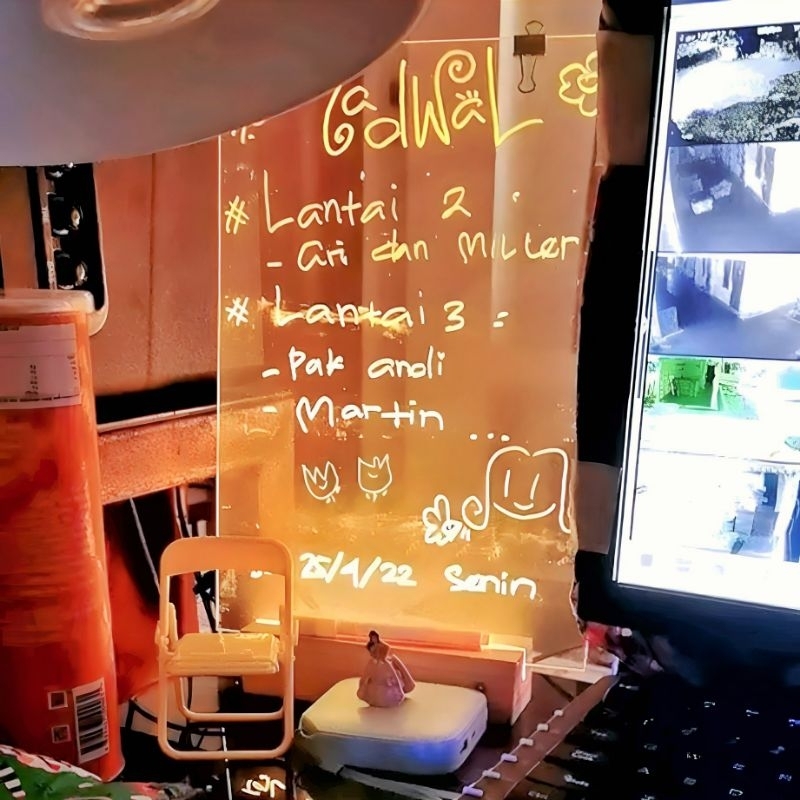 Jadwal
# Lantai 2 :
- Ari dan Miller
# Lantai 3 =
- Pak andi
- Martin
...
25/4/22 Senin